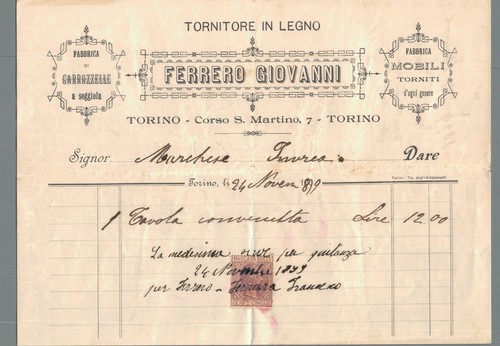 TORNITORE IN LEGNO
FABBRICA
DI
CARROZZELLE
a seggiola
FERRERO GIOVANNI
FABBRICA
MOBILI
TORNITI
d'ogni genere
TORINO - Corso S. Martino, 7 - TORINO
Signor Marchese Dare
Torino, li 24 Novem 1899
Torino - Tip. degli Artigianelli
1 Tavola Lire 12.00
La medesima serve per quitanza
24 Novembre 1899
per Ferrero - Ferrara Francesco